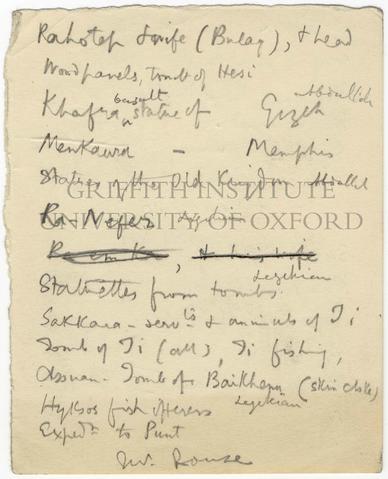 Rahotep & wife (Bulaq), & head
Wood panels, tomb of Hesi
Khafra basalt statue of Gizeh Abdullah
Menkaura - Memphis
Statues of the Old Kingdom Abdullah
GRIFFITH INSTITUTE
Ra-Nefer
UNIVERSITY OF OXFORD
Ra em Ka, & his wife
Statuettes from tombs. Legekian
Sakkara - servts & animals of Ti
Tomb of Ti (all), Ti fishing,
Assuan - Tomb of Baikhenu (skin cloke)
Hyksos fish offerers Legekian
Expedn to Punt
W. Rouse